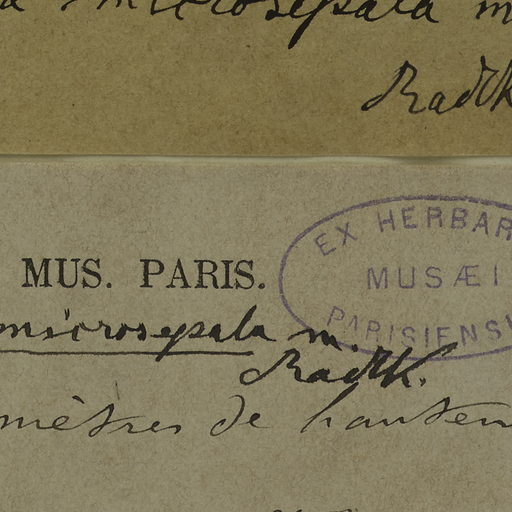 microsepala m
Radlk
EX HERBAR
MUSÆI
PARISIENS
MUS. PARIS.
microsepala m.
Radlk.
mètres de hauteu